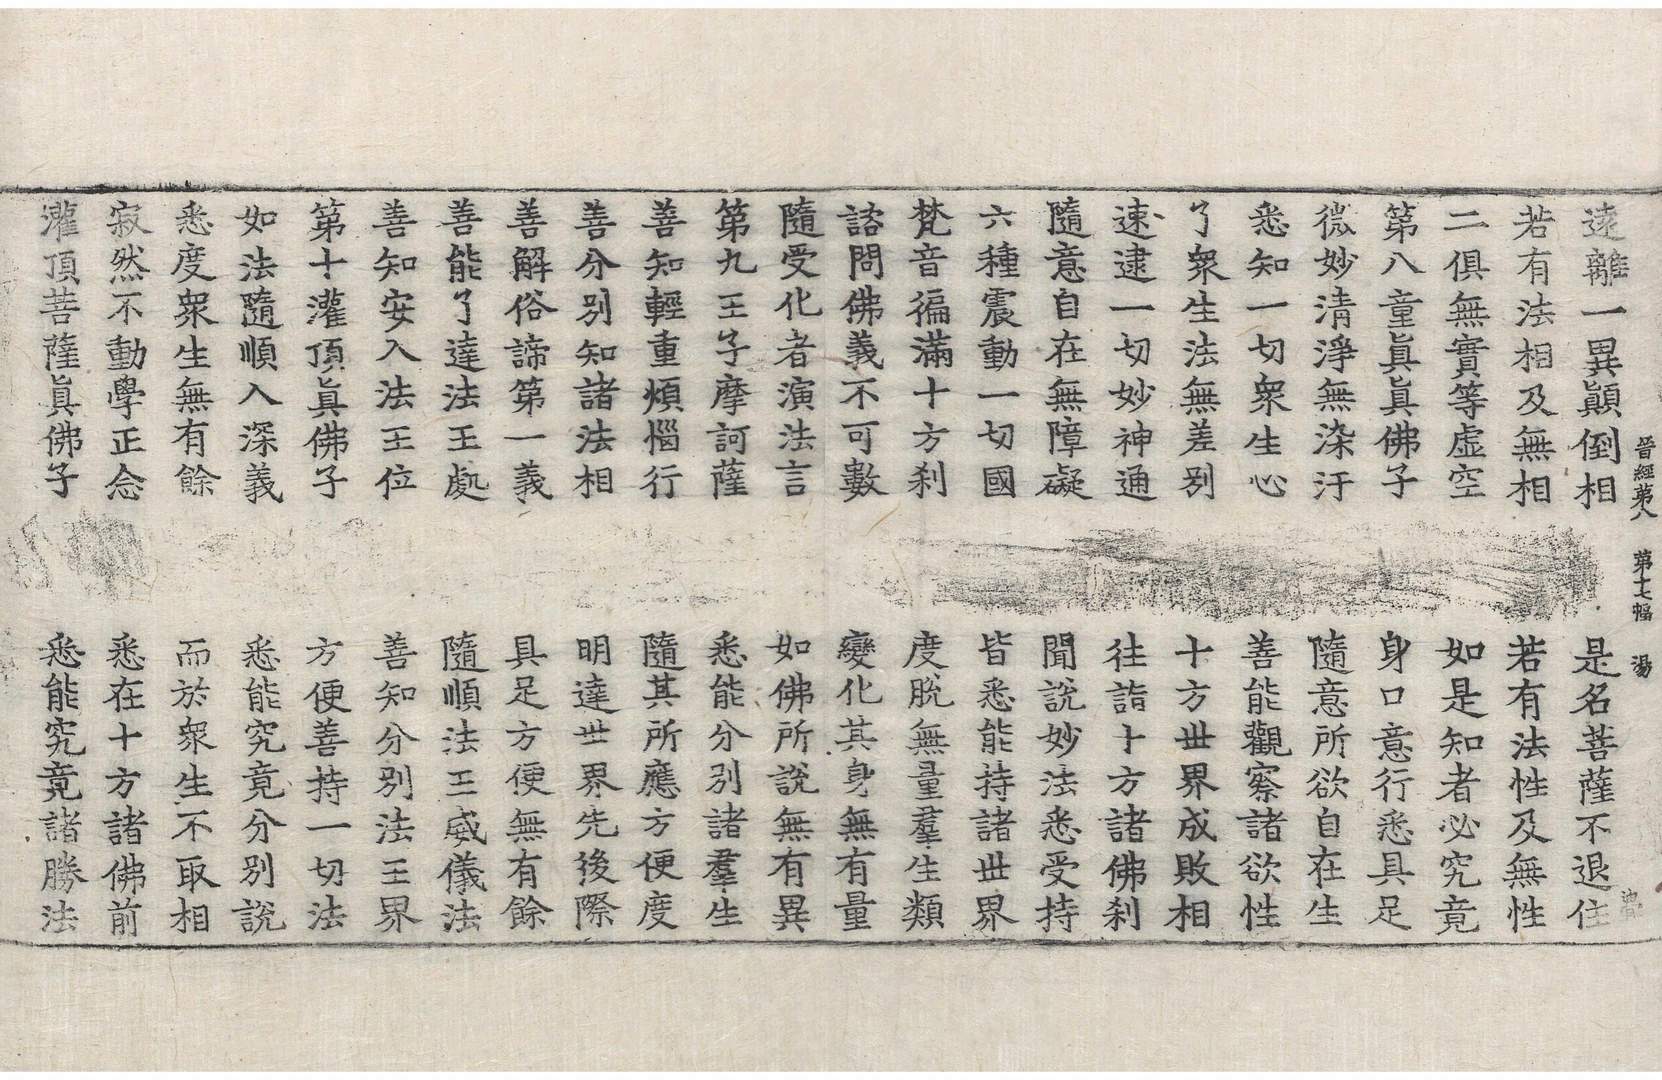 晉經第八 第十七幅 湯
遠離一異顚倒相 是名菩薩不退住
若有法相及無相 若有法性及無性
二俱無實等虛空 如是知者必究竟
第八童眞眞佛子 身口意行悉具足
微妙清淨無染汙 隨意所欲自在生
悉知一切衆生心 善能觀察諸欲性
了衆生法無差別 十方世界成敗相
速逮一切妙神通 往詣十方諸佛刹
隨意自在無障礙 聞說妙法悉受持
六種震動一切國 皆悉能持諸世界
梵音徧滿十方刹 度脫無量羣生類
諮問佛義不可數 變化其身無有量
隨受化者演法言 如佛所說無有異
第九王子摩訶薩 悉能分別諸羣生
善知輕重煩惱行 隨其所應方便度
善分別知諸法相 明達世界先後際
善解俗諦第一義 具足方便無有餘
善能了達法王處 隨順法王威儀法
善知安入法王位 善知分別法王界
第十灌頂眞佛子 方便善持一切法
如法隨順入深義 悉能究竟分別說
悉度衆生無有餘 而於衆生不取相
寂然不動學正念 悉在十方諸佛前
灌頂菩薩眞佛子 悉能究竟諸勝法